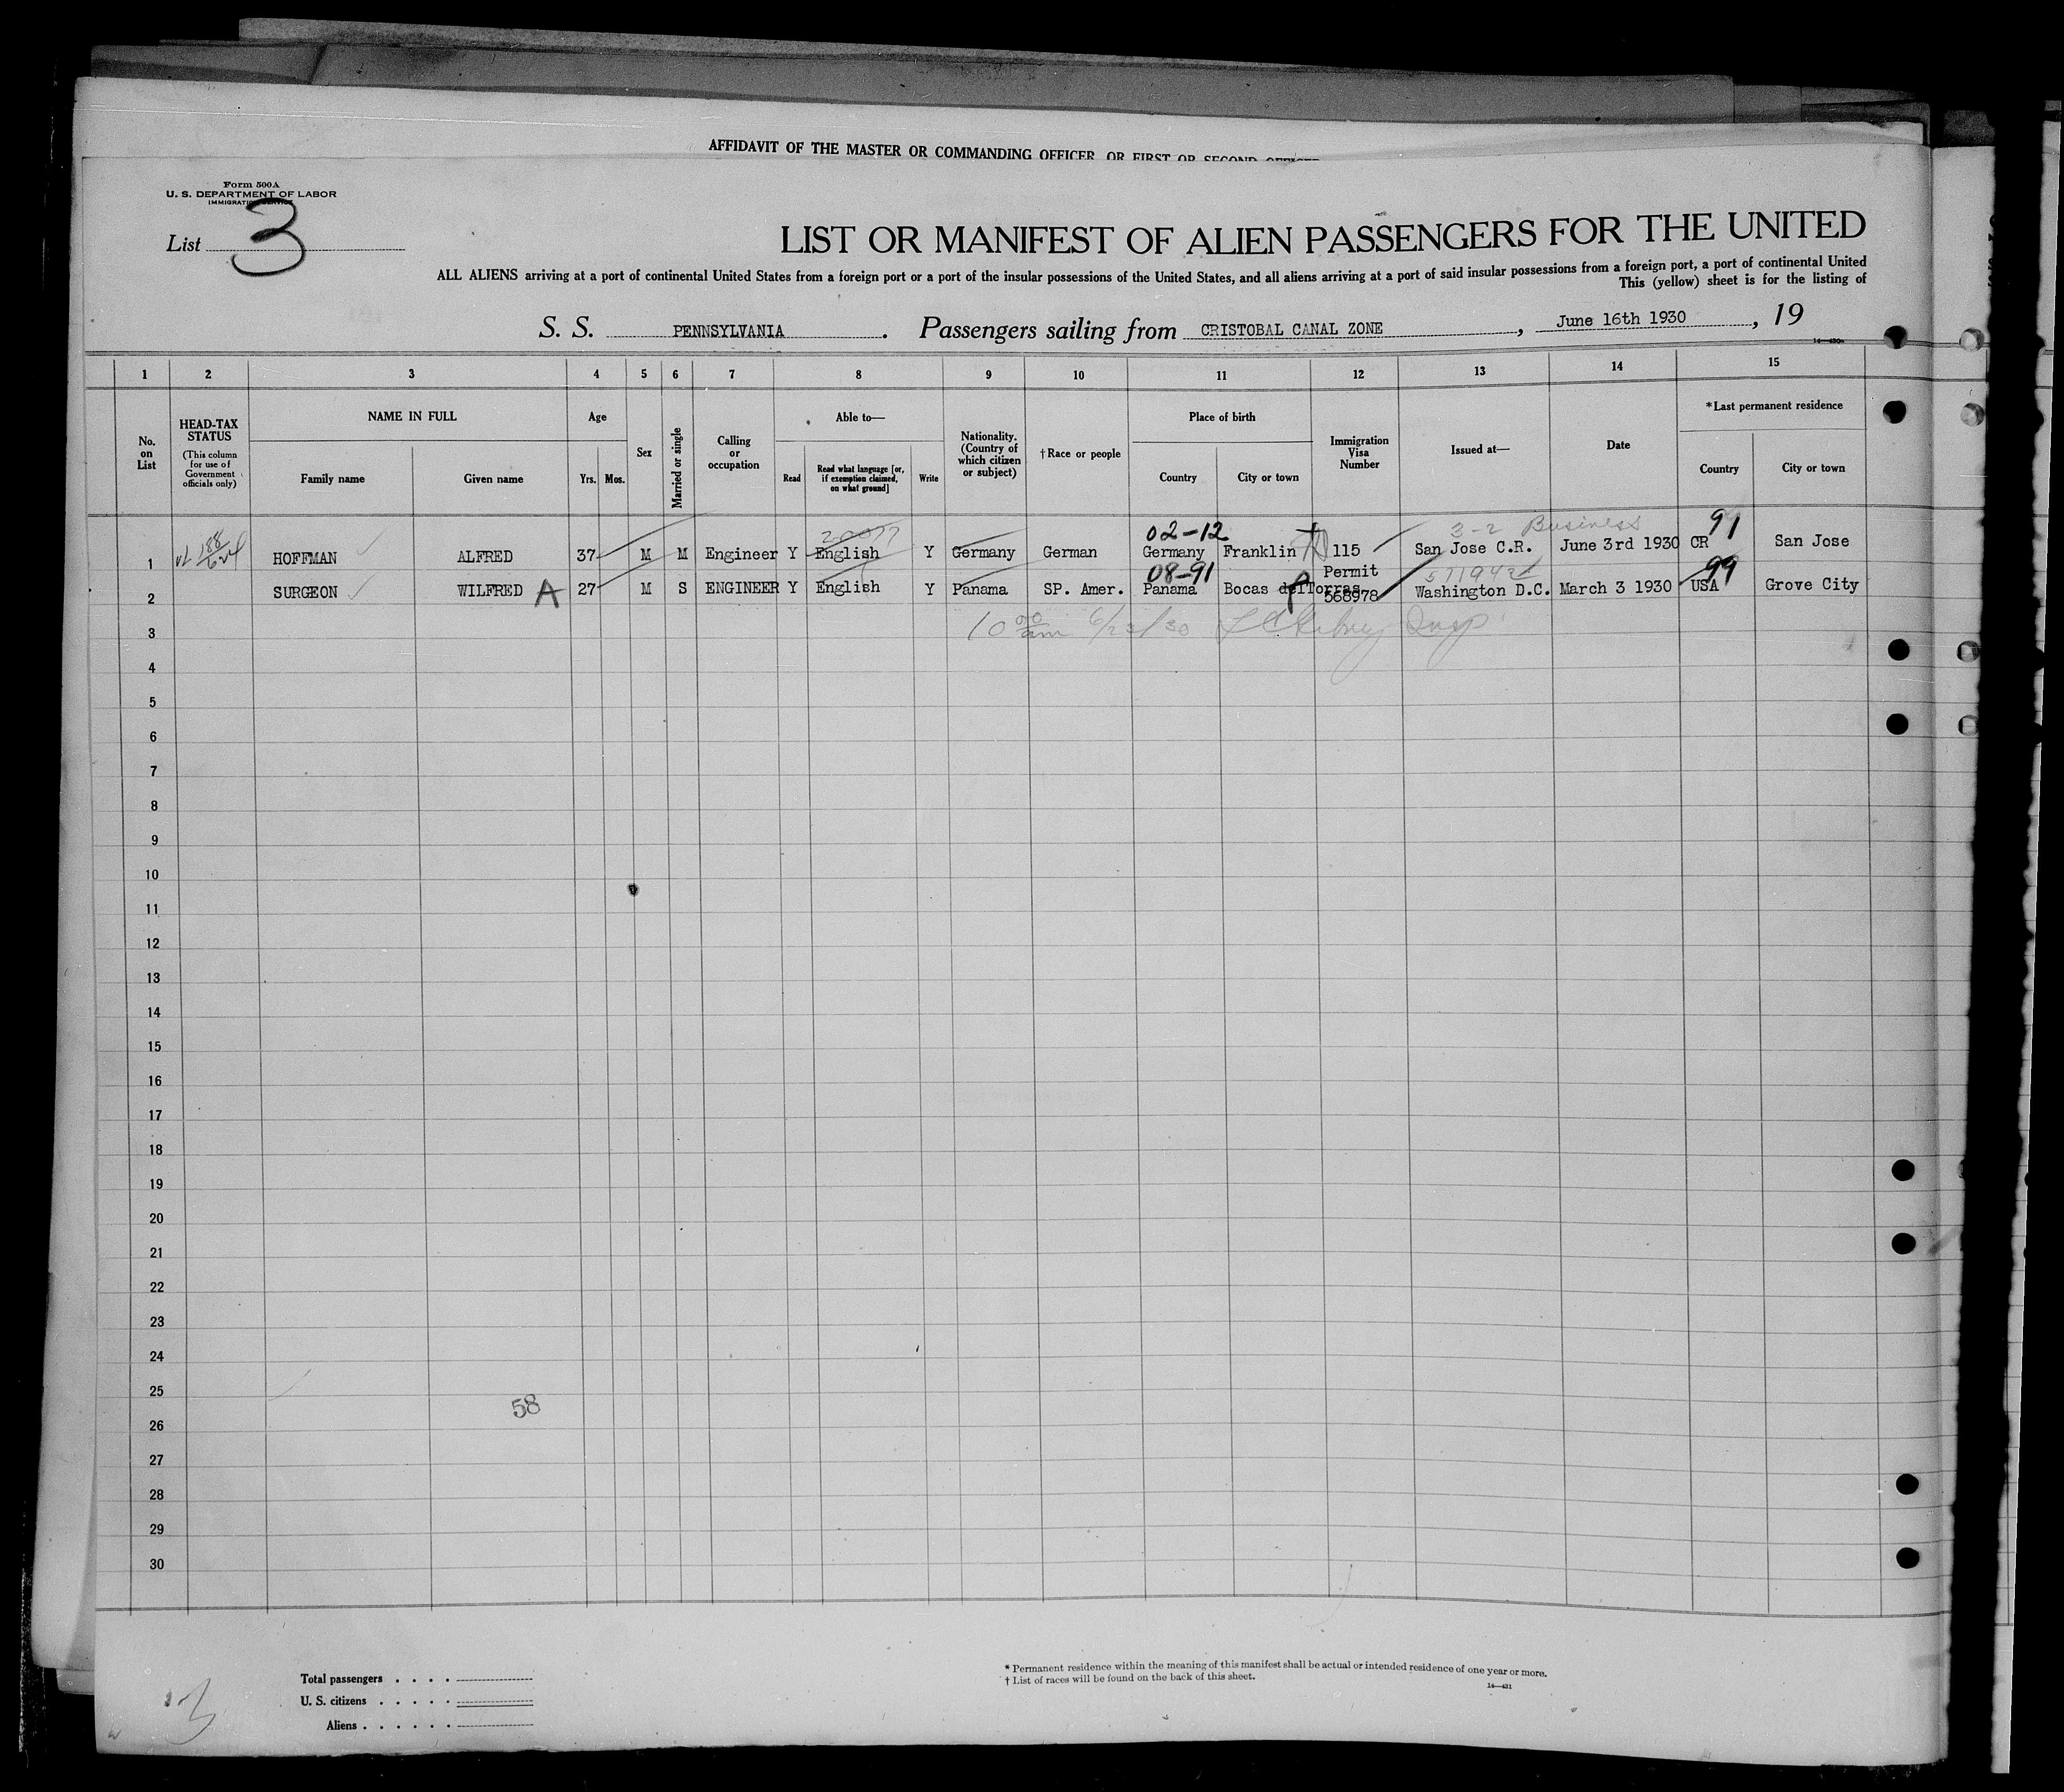 AFFIDAVIT OF THE MASTER OR COMMANDING OFFICER, OR FIRST OR SECOND OFFICER
Form 500A
U. S. DEPARTMENT OF LABOR
IMMIGRATION SERVICE
List 3
LIST OR MANIFEST OF ALIEN PASSENGERS FOR THE UNITED
ALL ALIENS arriving at a port of continental United States from a foreign port or a port of the insular possessions of the United States, and all aliens arriving at a port of said insular possessions from a foreign port, a port of continental United
This (yellow) sheet is for the listing of
S. S. PENNSYLVANIA. Passengers sailing from CRISTOBAL CANAL ZONE, June 16th 1930, 19
1 2 3 4 5 6 7 8 9 10 11 12 13 14 15
No. on List
HEAD-TAX STATUS
(This column for use of Government officials only)
NAME IN FULL
Family name Given name
Age
Yrs. Mos.
Sex
Married or single
Calling or occupation
Able to—
Read Read what language [or, if exemption claimed, on what ground] Write
Nationality. (Country of which citizen or subject)
†Race or people
Place of birth
Country City or town
Immigration Visa Number
Issued at—
Date
*Last permanent residence
Country City or town
02-12 3-2 Business 91
1 HOFFMAN ALFRED 37 M M Engineer Y English Y Germany German Germany Franklin 115 San Jose C.R. June 3rd 1930 CR San Jose
08-91 Permit 99
2 SURGEON WILFRED A 27 M S ENGINEER Y English Y Panama SP. Amer. Panama Bocas delTorras 568978 Washington D.C. March 3 1930 USA Grove City
3 10 00 am 6/23/30 Insp
4
5
6
7
8
9
10
11
12
13
14
15
16
17
18
19
20
21
22
23
24
25
58
26
27
28
29
30
Total passengers . . . .
U. S. citizens . . . . .
Aliens . . . . . .
* Permanent residence within the meaning of this manifest shall be actual or intended residence of one year or more.
† List of races will be found on the back of this sheet.
14—431
3